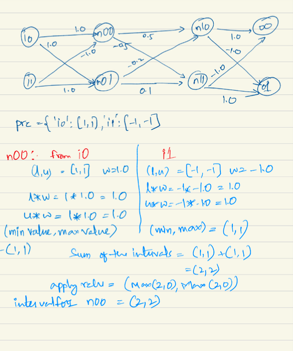 i0 1.0 n00 0.5 n10 1.0 o0
1.0 -1.0 -0.5 -0.2 -1.0 -1.0
i1 1.0 n01 0.1 n11 1.0 o1
pre = {'i0': [1,1], 'i1': [-1,-1]
n00: from i0
(l,u) = [1,1] w=1.0
l*w = 1*1.0 = 1.0
u*w = 1*1.0 = 1.0
(min value, max value)
= (1,1)
i1
(l,u) = [-1,-1] w = -1.0
l*w = -1*-1.0 = 1.0
u*w = -1*-1.0 = 1.0
(min, max) = (1,1)
Sum of the intervals = (1,1) + (1,1)
= (2,2)
apply relu = (max(2,0), max(2,0))
interval for n00 = (2,2)